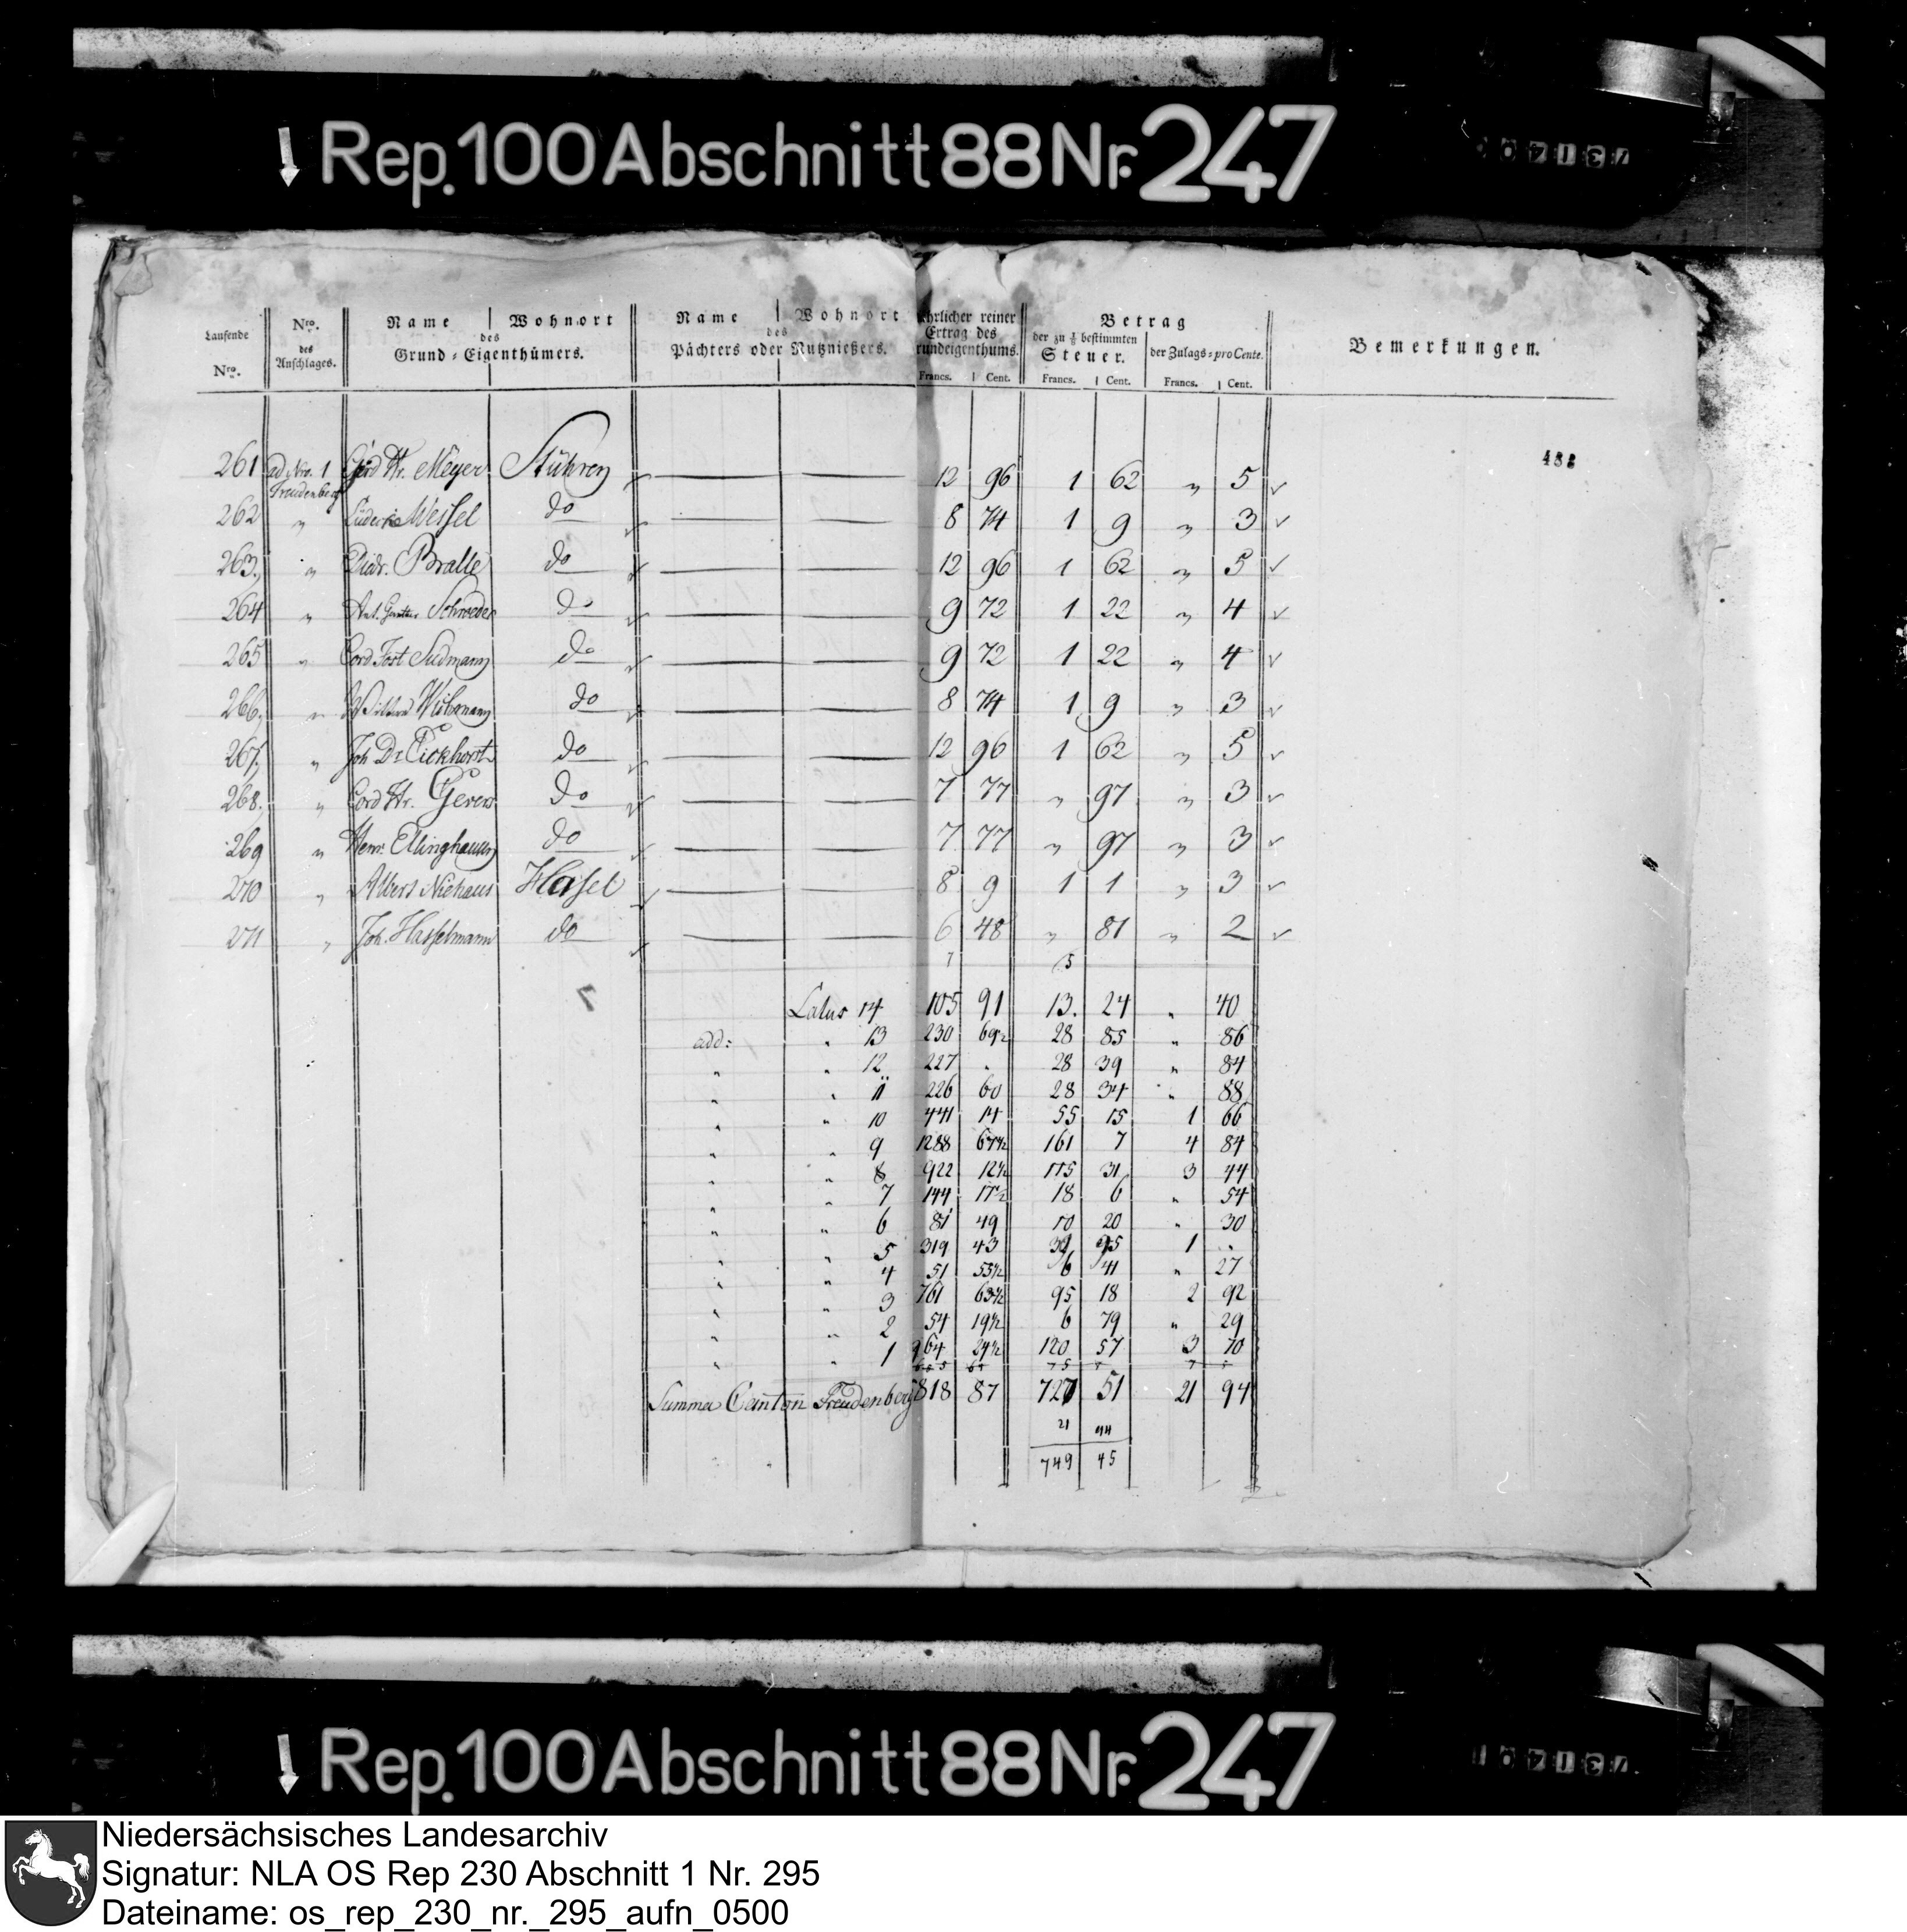 Rep. 100 Abschnitt 88 Nr. 247
Laufende Nro.
Nro. des Anschlages.
Name | Wohnort des Grund-Eigenthümers.
Name | Wohnort des Pächters oder Nutznießers.
jährlicher reiner Ertrag des Grundeigenthums. Francs. | Cent.
Betrag
der zu ⅛ bestimmten Steuer. Francs. | Cent.
der Zulags-proCente. Francs. | Cent.
Bemerkungen.
261 ad Nro. 1 Freudenberg Gerd Hr. Meyer Stühren 12 96 1 62 " 5
262 " Wessel do 8 74 1 9 " 3
263. " Diedr. Bralle do 12 96 1 62 " 5
264 " Schroeder do 9 72 1 22 " 4
265 " Cord Jost Sudmann do 9 72 1 22 " 4
266. " do 8 74 1 9 " 3
267. " Joh Dr Eickhorst do 12 96 1 62 " 5
268. " Cord Hr. Gevers do 7 77 " 97 " 3
269 " Henr. Ellinghausen do 7 77 " 97 " 3
270 " Albert Niehaus Hasel 8 9 1 1 " 3
271 " Joh. Hasselmann do 6 48 " 81 " 2
7 5
Latus 14 105 91 13. 24 " 40
add: " 13 230 69½ 28 85 " 86
" " 12 227 " 28 39 " 84
" " 11 226 60 28 34 " 88
" " 10 441 14 55 15 1 66
" " 9 1288 67½ 161 7 4 84
" " 8 922 12½ 115 31 3 44
" " 7 144 17½ 18 6 " 54
" " 6 81 49 10 20 " 30
" " 5 319 43 39 95 1 "
" " 4 51 53½ 6 41 " 27
" " 3 761 63½ 95 18 2 92
" " 2 54 19½ 6 79 " 29
" " 1 964 24½ 120 57 3 70
Summa Canton Freudenberg 5818 87 727 51 21 94
21 94
749 45
Rep. 100 Abschnitt 88 Nr. 247
Niedersächsisches Landesarchiv
Signatur: NLA OS Rep 230 Abschnitt 1 Nr. 295
Dateiname: os_rep_230_nr._295_aufn_0500